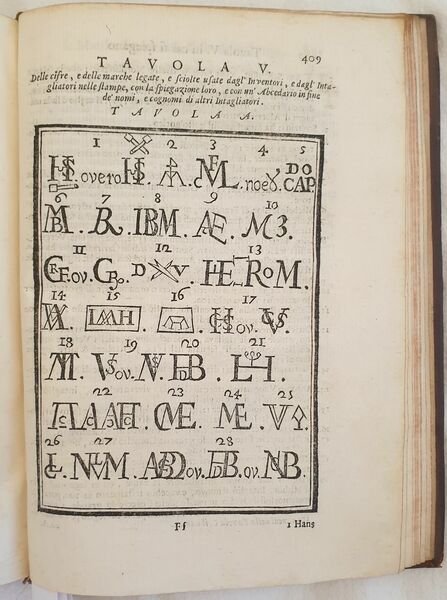 TAVOLA V. 409
Delle cifre, e delle marche legate, e sciolte usate dagl'Inventori, e dagl'Inta-
gliatori nelle stampe, con la spiegazione loro, e con un'Abcedario in fine
de' nomi, e cognomi di altri Intagliatori.
TAVOLA A.
1 2 3 4 5
HS. overo HS. DO CAP.
6 7 8 9 10
MB. R. IBM. Æ. M3.
11 12 13
ov. D V. HEROM.
14 15 16 17
ov. VS.
18 19 20 21
ov. HB. LH.
22 23 24 25
ME. ME.
26 27 28
NLM. ABD ov. HB. ov. NB.
Ff 1 Hans